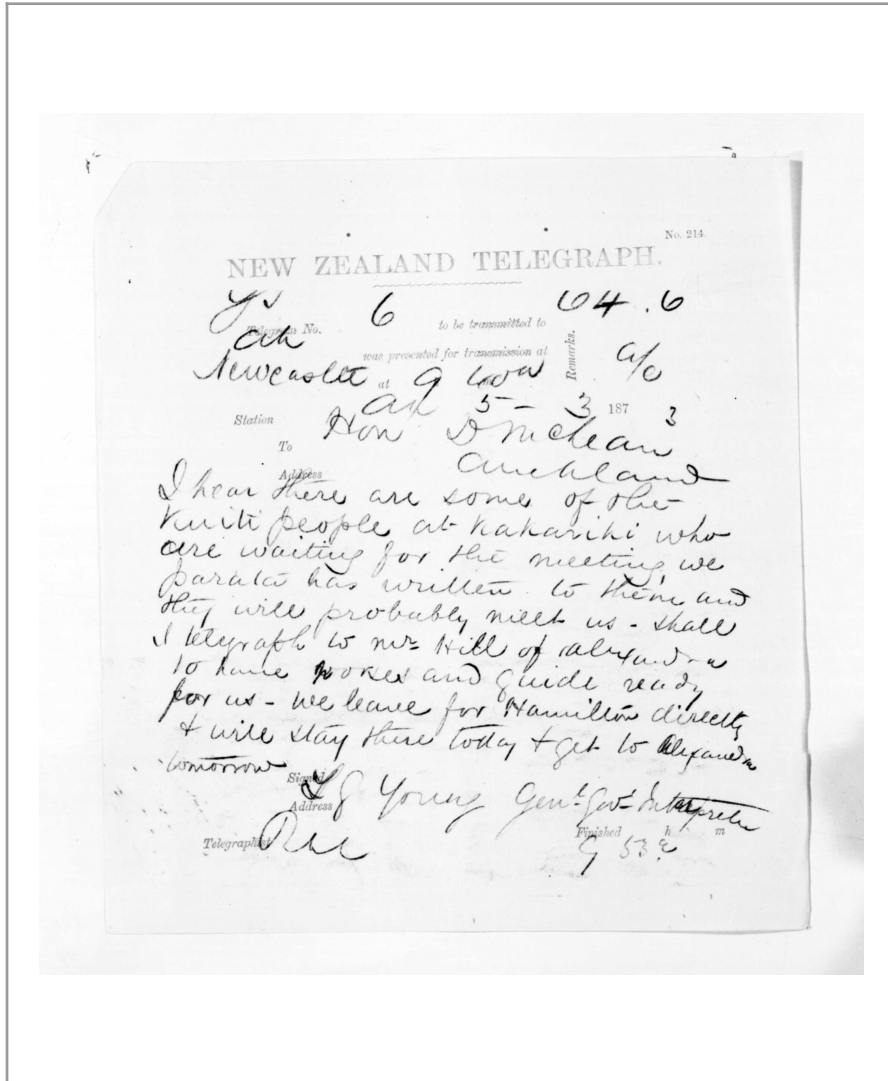 No. 214.
NEW ZEALAND TELEGRAPH.
Telegram No. 6 to be transmitted to 64.6
Ak
was presented for transmission at Remarks.
Newcastle at 9
Ak 5 - 3 1873
Station
To Hon D McLean
Address Auckland
I hear there are some of the
Kuiti people at Kakariki who
are waiting for the meeting, we
parata has written to them and
they will probably meet us - shall
I telegraph to Mr Hill of alexandra
to have horses and guide ready
for us - we leave for Hamilton directly
& will stay there today & get to Alexandra
tomorrow
Signed Young Genl Govt Interpreter
Address
Telegraphist
Finished h m
9 53